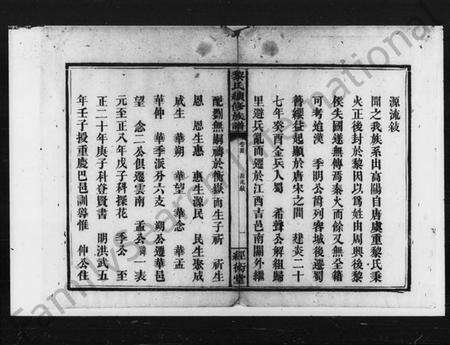 源流敍
聞之我族系由高陽自唐虞重黎氏秉
火正後封於黎因以爲姓由周興後黎
侯失國遂無傳焉秦火而餘又無全籍
可考迨漢 季明公爵列容城後遷蜀
普緩益起顯於唐宋之間 建炎二十
七年癸酉金兵入蜀 希聲公解組歸
里遊兵亂而遷於江西吉邑南關外繼
黎氏續修族譜
卷首
源流敍
經術堂
配劉無嗣禱於衡嶽而生子祈 祈生
恩 恩生惠 惠生源民 民生聚成
成生 華朔 華望 華念 華孟
華仲 華季派分六支 朔公遷華邑
望 念二公俱遷雲南 孟公 一表
元至正八年戊子科探花 季公 至
正二十年庚子科登賢書 明洪武五
年壬子授重慶巴邑訓導惟 仲公住
FamilySearch International